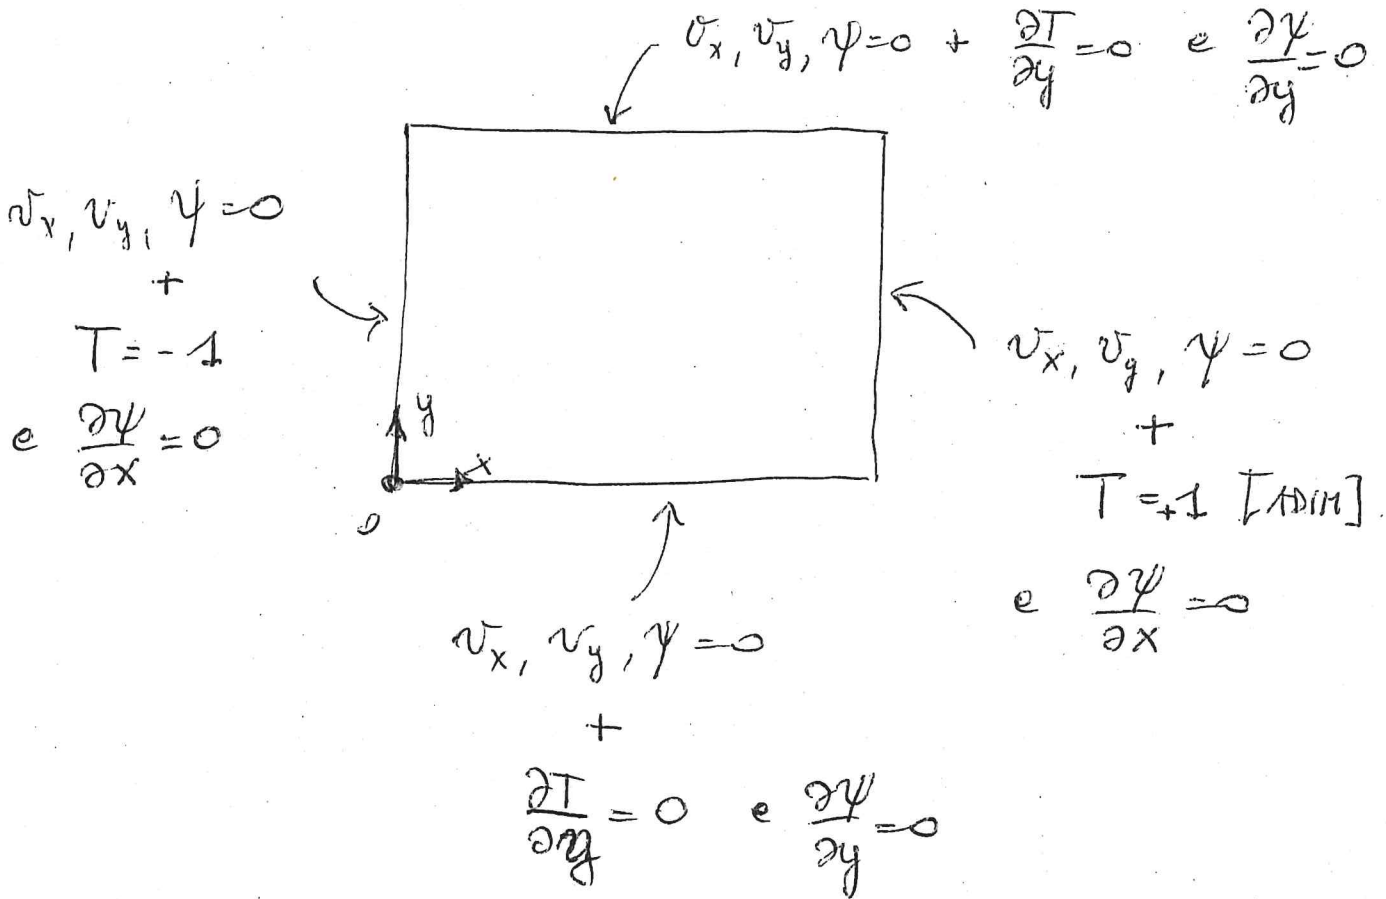 vx, vy, ψ=0 + ∂T/∂y=0 e ∂ψ/∂y=0
vx, vy, ψ=0
+
T=-1
e ∂ψ/∂x=0
vx, vy, ψ=0
+
T=+1 [ADIM].
e ∂ψ/∂x=0
y
x
0
vx, vy, ψ=0
+
∂T/∂y=0 e ∂ψ/∂y=0